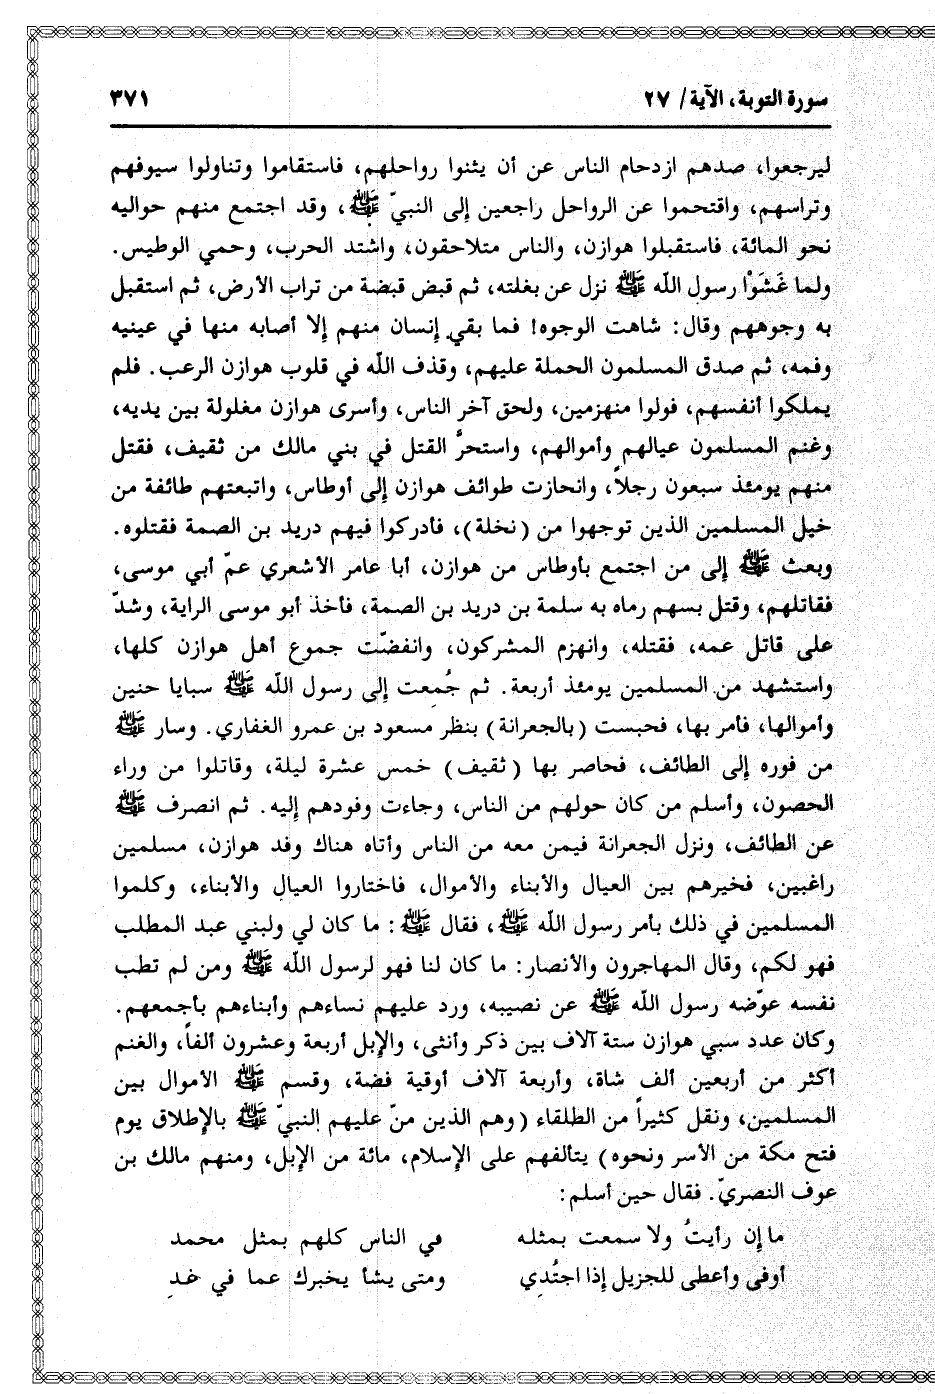 سورة التوبة، الآية/ ٢٧
٣٧١
ليرجعوا، صدهم ازدحام الناس عن أن يثنوا رواحلهم، فاستقاموا وتناولوا سيوفهم
وتراسهم، واقتحموا عن الرواحل راجعين إلى النبيّ ﷺ، وقد اجتمع منهم حواليه
نحو المائة، فاستقبلوا هوازن، والناس متلاحقون، واشتد الحرب، وحمي الوطيس.
ولما غَشَوْا رسول الله ﷺ نزل عن بغلته، ثم قبض قبضة من تراب الأرض، ثم استقبل
به وجوههم وقال: شاهت الوجوه! فما بقي إنسان منهم إلا أصابه منها في عينيه
وفمه، ثم صدق المسلمون الحملة عليهم، وقذف الله في قلوب هوازن الرعب. فلم
يملكوا أنفسهم، فولوا منهزمين، ولحق آخر الناس، وأسرى هوازن مغلولة بين يديه،
وغنم المسلمون عيالهم وأموالهم، واستحرَّ القتل في بني مالك من ثقيف، فقتل
منهم يومئذ سبعون رجلاً، وانحازت طوائف هوازن إلى أوطاس، واتبعتهم طائفة من
خيل المسلمين الذين توجهوا من (نخلة)، فأدركوا فيهم دريد بن الصمة فقتلوه.
وبعث ﷺ إلى من اجتمع بأوطاس من هوازن، أبا عامر الأشعري عمّ أبي موسى،
فقاتلهم، وقتل بسهم رماه به سلمة بن دريد بن الصمة، فأخذ أبو موسى الراية، وشدّ
على قاتل عمه، فقتله، وانهزم المشركون، وانفضّت جموع أهل هوازن كلها،
واستشهد من المسلمين يومئذ أربعة. ثم جُمِعت إلى رسول الله ﷺ سبايا حنين
وأموالها، فأمر بها، فحبست (بالجعرانة) بنظر مسعود بن عمرو الغفاري. وسار ﷺ
من فوره إلى الطائف، فحاصر بها (ثقيف) خمس عشرة ليلة، وقاتلوا من وراء
الحصون، وأسلم من كان حولهم من الناس، وجاءت وفودهم إليه. ثم انصرف ﷺ
عن الطائف، ونزل الجعرانة فيمن معه من الناس وأتاه هناك وفد هوازن، مسلمين
راغبين، فخيرهم بين العيال والأبناء والأموال، فاختاروا العيال والأبناء، وكلموا
المسلمين في ذلك بأمر رسول الله ﷺ، فقال ﷺ: ما كان لي ولبني عبد المطلب
فهو لكم، وقال المهاجرون والأنصار: ما كان لنا فهو لرسول الله ﷺ ومن لم تطب
نفسه عوّضه رسول الله ﷺ عن نصيبه، ورد عليهم نساءهم وأبناءهم بأجمعهم.
وكان عدد سبي هوازن ستة آلاف بين ذكر وأنثى، والإبل أربعة وعشرون ألفاً، والغنم
أكثر من أربعين ألف شاة، وأربعة آلاف أوقية فضة، وقسم ﷺ الأموال بين
المسلمين، ونقل كثيراً من الطلقاء (وهم الذين منّ عليهم النبيّ ﷺ بالإطلاق يوم
فتح مكة من الأسر ونحوه) يتألفهم على الإسلام، مائة من الإبل، ومنهم مالك بن
عوف النصريّ. فقال حين أسلم:
ما إن رأيتُ ولا سمعت بمثله في الناس كلهم بمثل محمد
أوفى وأعطى للجزيل إذا اجتُدِي ومتى يشأ يخبرك عما في غدِ